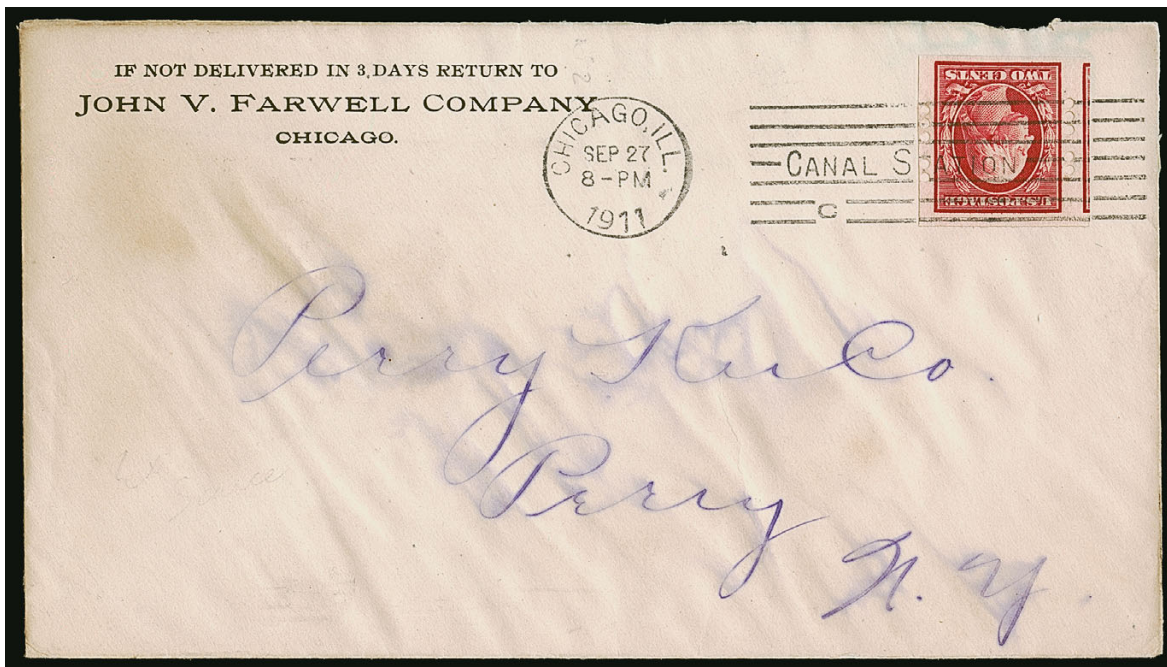 IF NOT DELIVERED IN 3 DAYS RETURN TO
JOHN V. FARWELL COMPANY
CHICAGO.
CHICAGO, ILL.
SEP 27
8-PM
1911
CANAL STATION
C
TWO CENTS
U.S. POSTAGE
Perry Co.
Perry
N. Y.